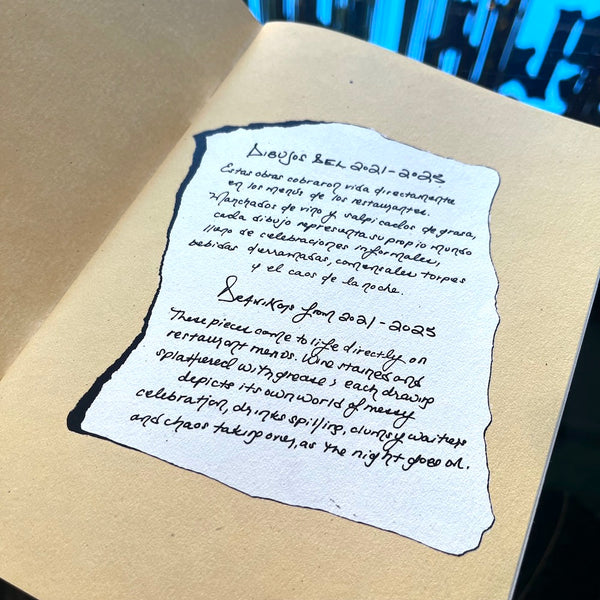 Dibujos DEL 2021-2025
Estas obras cobraron vida directamente
en los menús de los restaurantes.
Manchados de vino y salpicados de grasa,
cada dibujo representa su propio mundo
lleno de celebraciones informales,
bebidas derramadas, comensales torpes
y el caos de la noche.
from 2021-2025
These pieces come to life directly on
restaurant menus. Wine stained and
splattered with grease, each drawing
depicts its own world of messy
celebration, drinks spilling, clumsy waiters
and chaos taking over, as the night goes on.